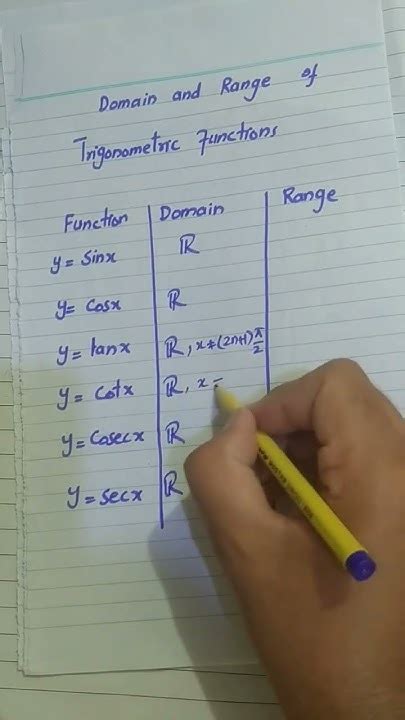 Domain and Range of
Trigonometric Functions
Function Domain Range
y = sinx ℝ
y = cosx ℝ
y = tanx ℝ, x ≠ (2n+1) π/2
y = cotx ℝ, x =
y = cosecx ℝ
y = secx ℝ